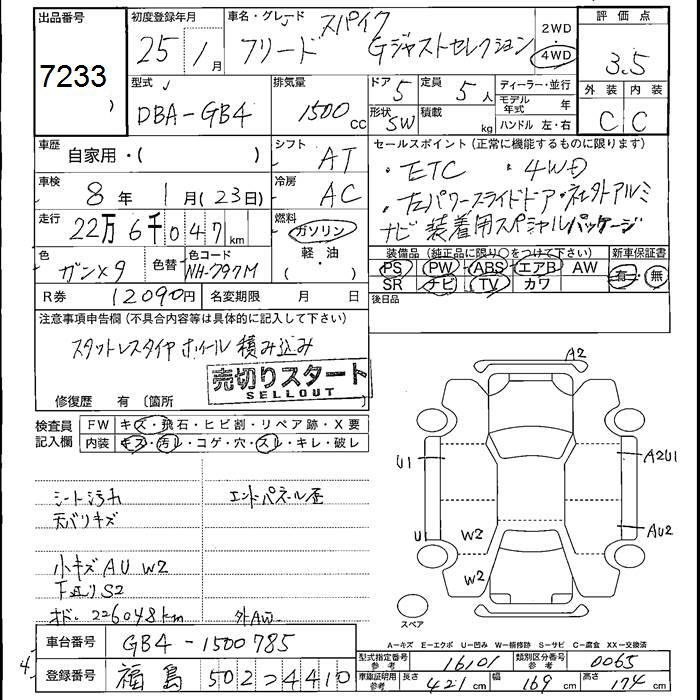 出品番号 初度登録年月 車名・グレード スパイク 2WD 評価点
7233 25 / 1月 フリード Gジャストセレクション 4WD 3.5
)
型式 排気量 ドア 5 定員 5人 ディーラー・並行 外装 内装
DBA-GB4 1500 cc 形状 SW 積載 kg モデル年式 年 C C
ハンドル 左・右
車歴 自家用・( ) シフト AT セールスポイント(正常に機能するものに限ります)
車検 8年 1月(23日) 冷房 AC ・ETC ・4WD
走行 22万6千047km 燃料 ガソリン ・左パワースライドドア・社外アルミ
軽・油 ナビ装着用スペシャルパッケージ
色 ガンメタ 色替 色コード NH-797M ( )
装備品(純正品に限り○をつけて下さい) 新車保証書
PS PW ABS エアB AW 有・無
SR ナビ TV カワ
R券 12090円 名変期限 月 日 後日品
注意事項申告欄(不具合内容等は具体的に記入して下さい)
スタットレスタイヤ ホイール 積み込み
売切りスタート
SELLOUT
修復歴 有(箇所
検査員記入欄 FW キズ・飛石・ヒビ割・リペア跡・X要
内装 キズ・汚レ・コゲ・穴・スレ・キレ・破レ
シート汚れ エンドパネル歪
天バリキズ
小キズ AU W2
下廻りS2
オド、226048km 外AW
A2
U1 A2U1
U1 AU2
W2
W2
スペア
A-キズ E-エクボ U-凹み W-補修跡 S-サビ C-腐食 XX-交換済
車台番号 GB4-1500785
型式指定番号 参考 16101 類別区分番号 参考 0065
4 登録番号 福島 502 そ 4410
車庫証明用 参考 長さ 421cm 幅 169cm 高さ 174cm